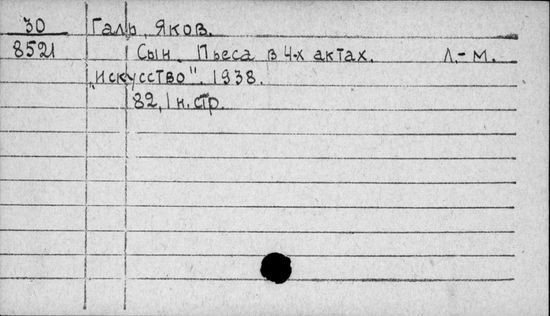 30 Галь, Яков.
8521 Сын. Пьеса в 4-х актах. Л.-М.
„Искусство". 1938.
82, 1 н. стр.